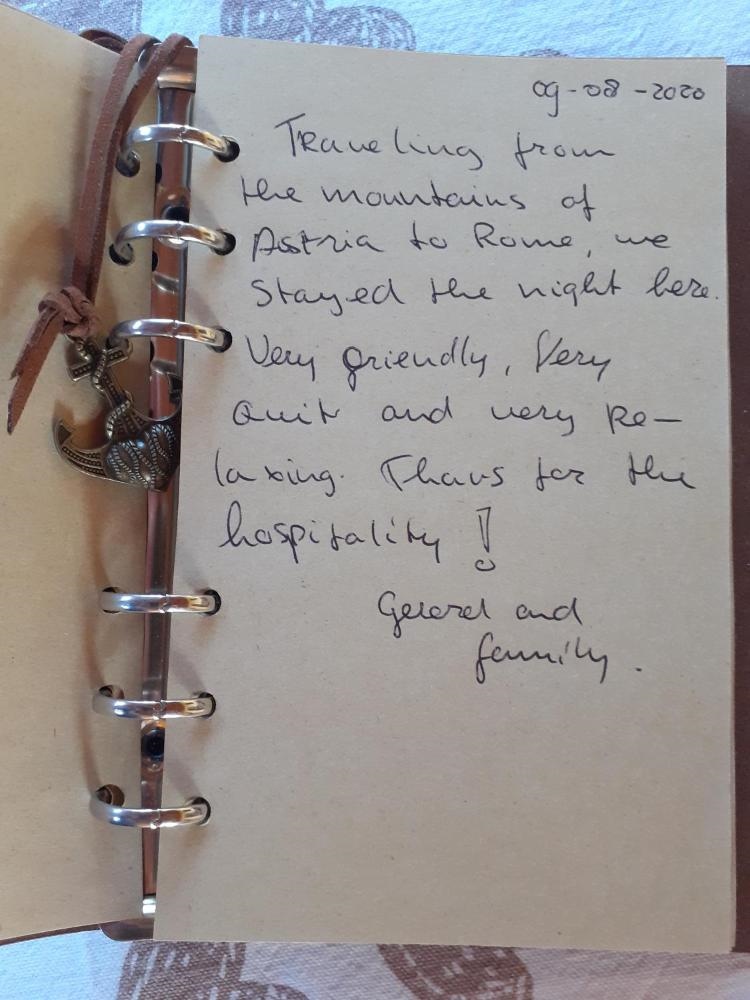 09-08-2020
Traveling from
the mountains of
Astria to Rome, we
stayed the night here.
Very friendly, Very
quit and very re-
laxing. Thanks for the
hospitality!
Gerard and
family.